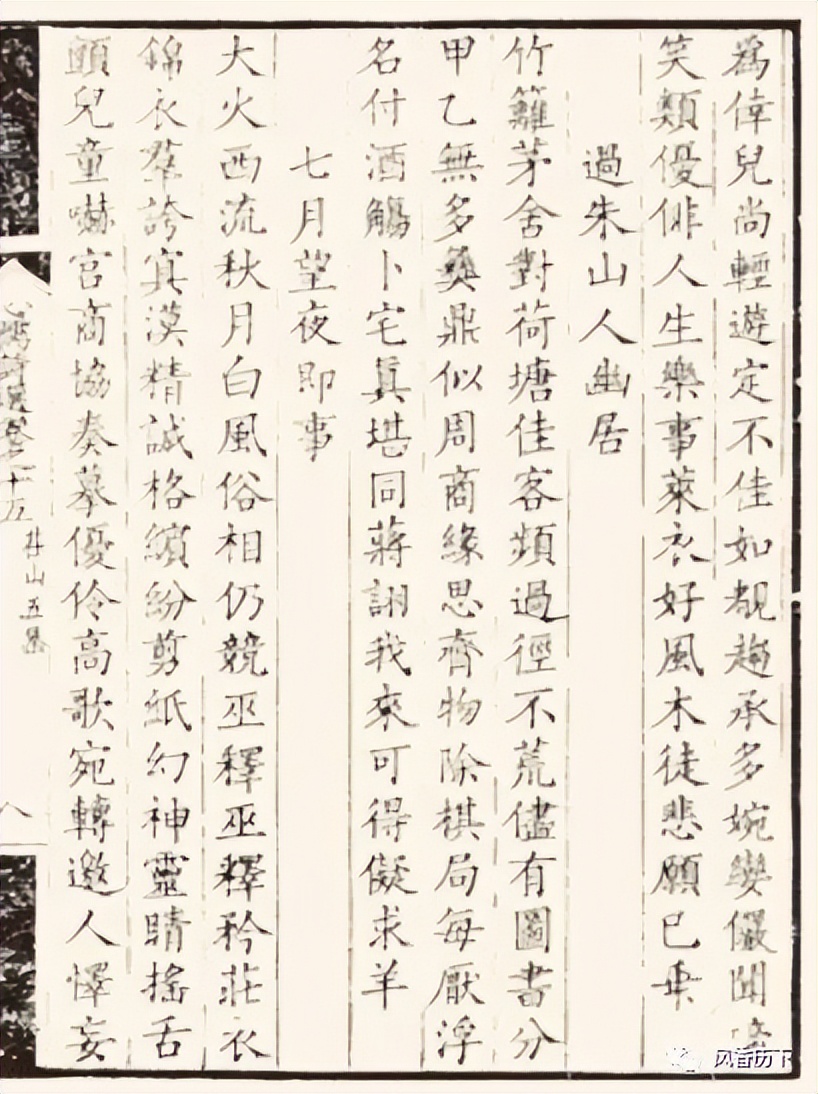 為倖兒尚輕遊定不佳如覩趨承多婉孌儼聞
笑類優俳人生樂事萊衣好風木徒悲願已乖
過朱山人幽居
竹籬茅舍對荷塘佳客頻過徑不荒儘有圖書分
甲乙無多彜鼎似周商緣思齊物除棋局每厭浮
名付酒觴卜宅真堪同蔣詡我來可得儗求羊
七月望夜即事
大火西流秋月白風俗相仍競巫釋巫釋矜莊衣
錦衣羣誇寘漠精誠格繽紛剪紙幻神靈睛搖舌
頤兒童嚇宮商協奏摹優伶高歌宛轉邀人懌妄
十五
井山五集
八
风香历下